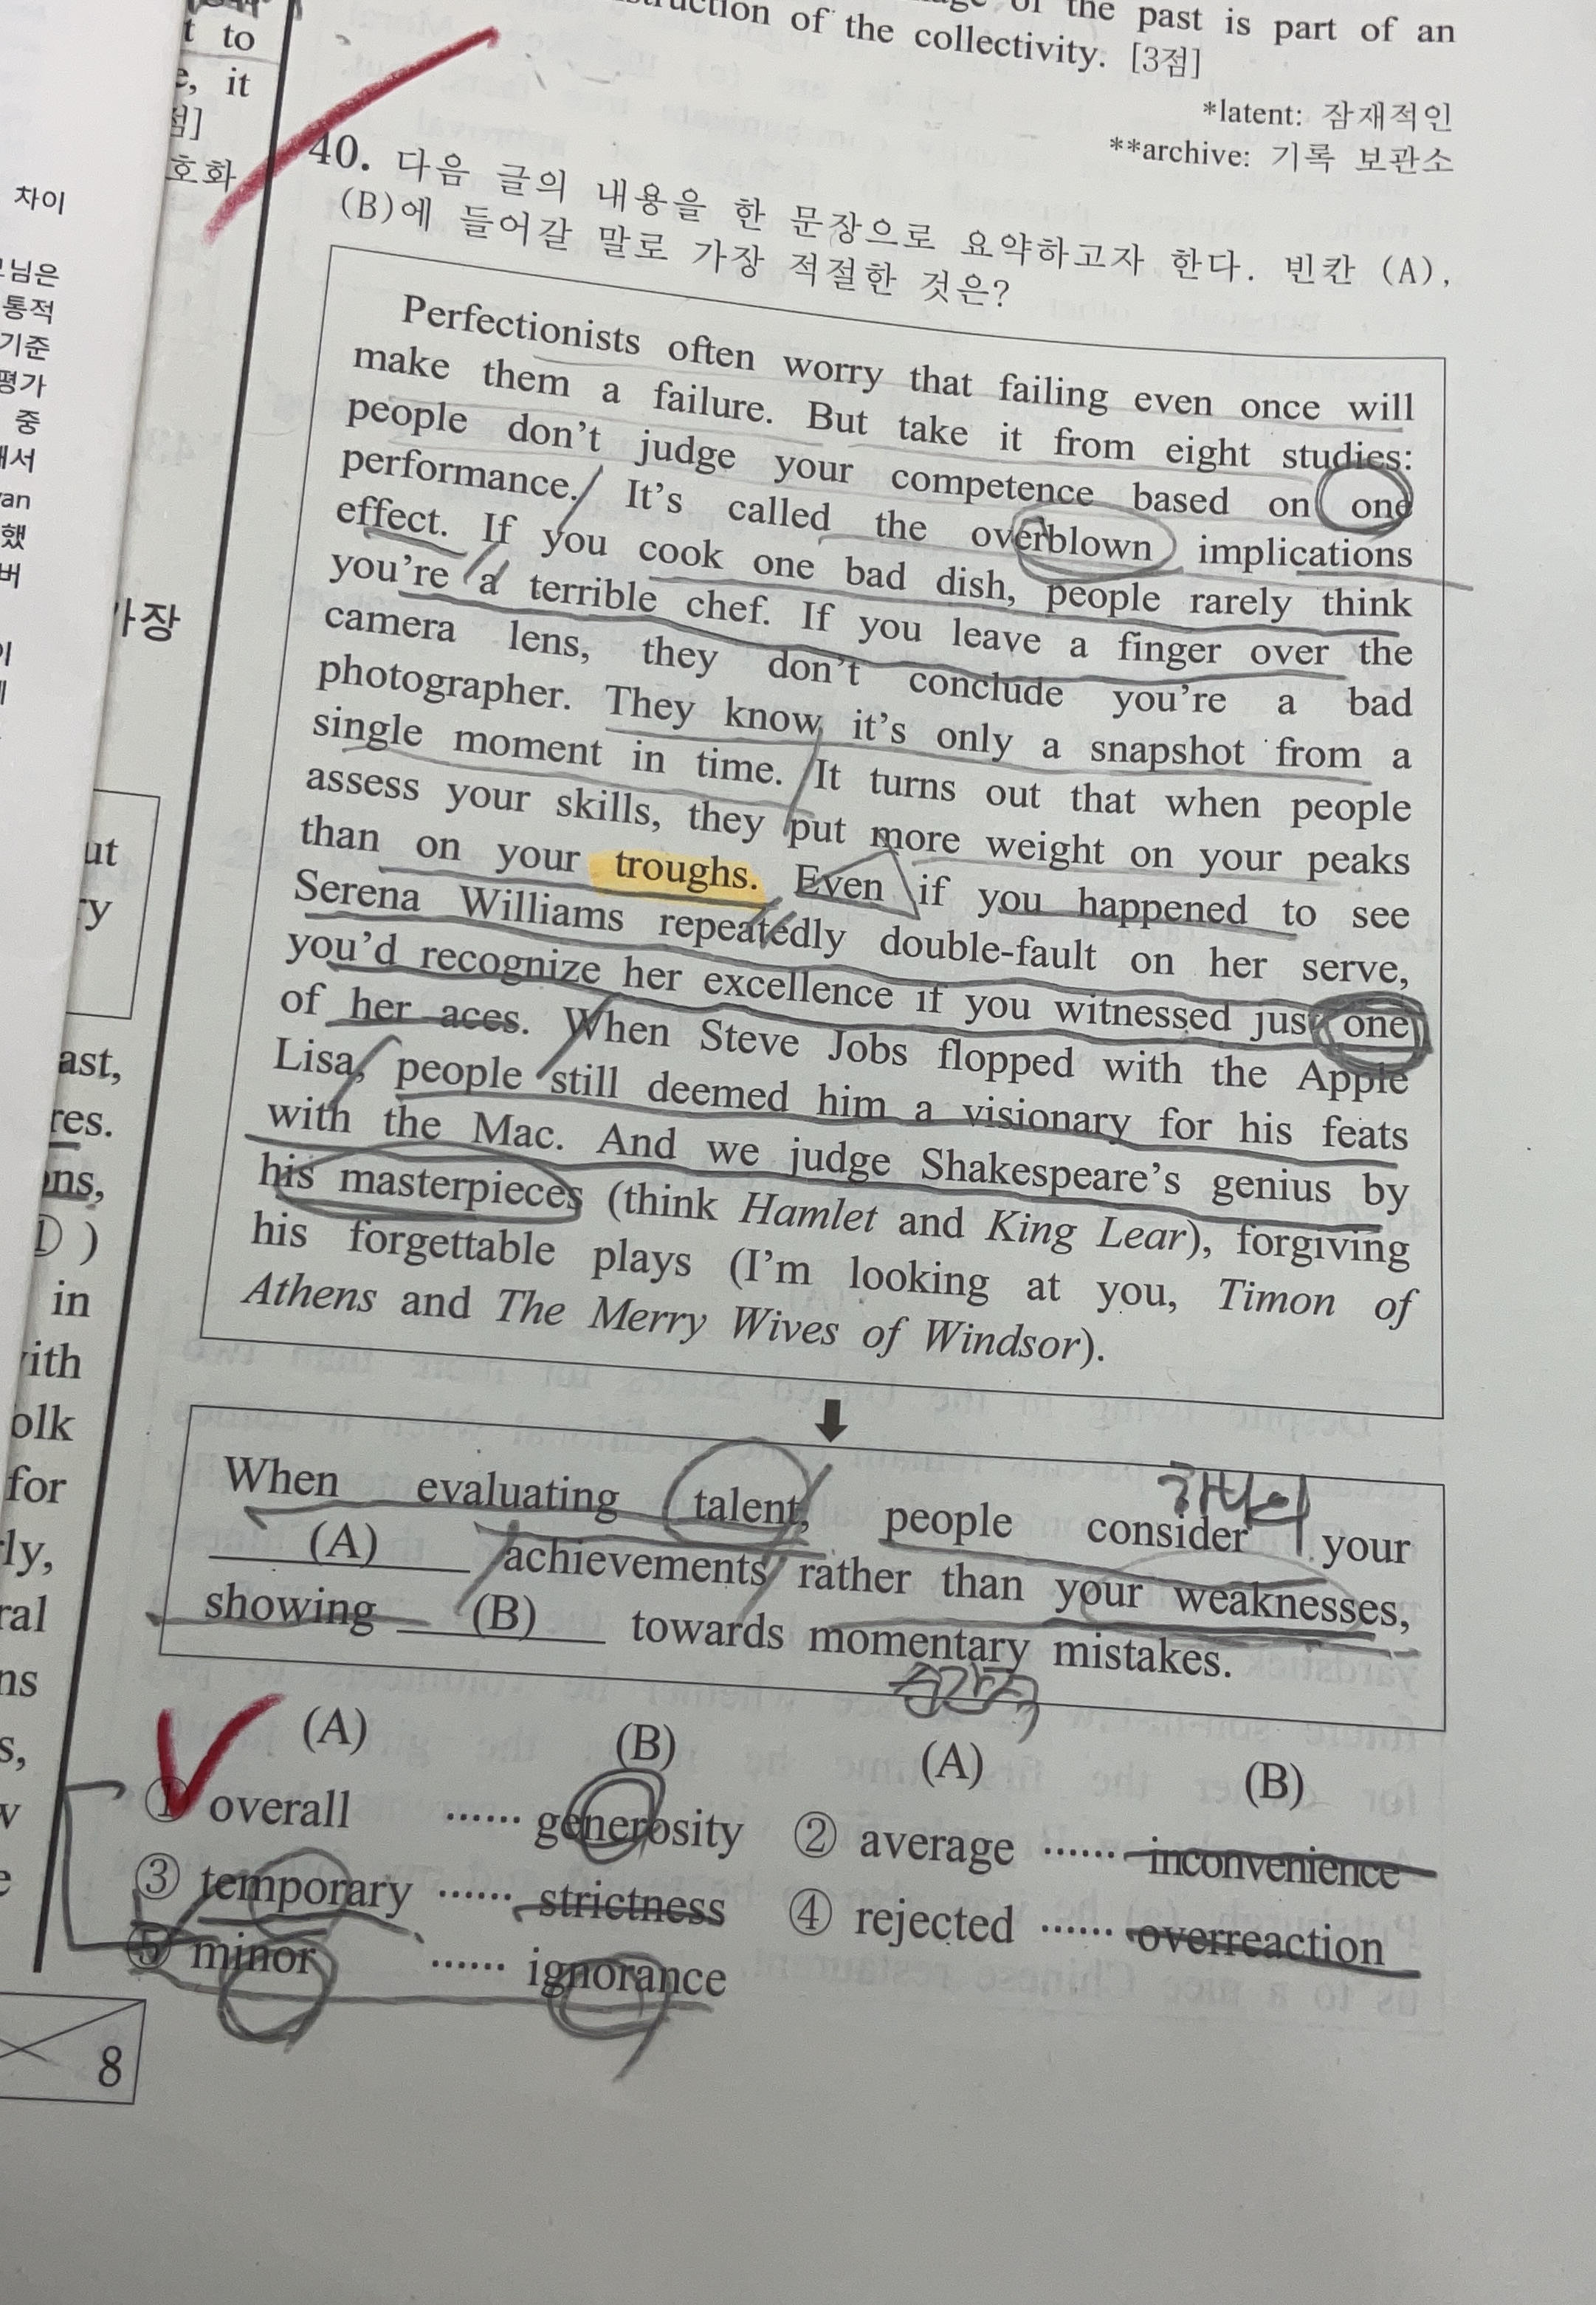 t to
e, it
점]
호화
차이
님은
통적
기준
평가
중
해서
van
했
버
가장
ut
ry
ast,
res.
ons,
① )
in
with
olk
for
ly,
ral
ns
s,
8
the past is part of an
of the collectivity. [3점]
*latent: 잠재적인
**archive: 기록 보관소
40. 다음 글의 내용을 한 문장으로 요약하고자 한다. 빈칸 (A),
(B)에 들어갈 말로 가장 적절한 것은?
Perfectionists often worry that failing even once will
make them a failure. But take it from eight studies:
people don't judge your competence based on one
performance. It's called the overblown implications
effect. If you cook one bad dish, people rarely think
you're a terrible chef. If you leave a finger over the
camera lens, they don't conclude you're a bad
photographer. They know it's only a snapshot from a
single moment in time. It turns out that when people
assess your skills, they put more weight on your peaks
than on your troughs. Even if you happened to see
Serena Williams repeatedly double-fault on her serve,
you'd recognize her excellence if you witnessed just one
of her aces. When Steve Jobs flopped with the Apple
Lisa, people still deemed him a visionary for his feats
with the Mac. And we judge Shakespeare's genius by
his masterpieces (think Hamlet and King Lear), forgiving
his forgettable plays (I'm looking at you, Timon of
Athens and The Merry Wives of Windsor).
When evaluating talent, people consider your
(A) achievements rather than your weaknesses,
showing (B) towards momentary mistakes.
순간적
(A) (B) (A) (B)
① overall ...... generosity ② average ...... inconvenience
③ temporary ...... strictness ④ rejected ...... overreaction
⑤ minor ...... ignorance